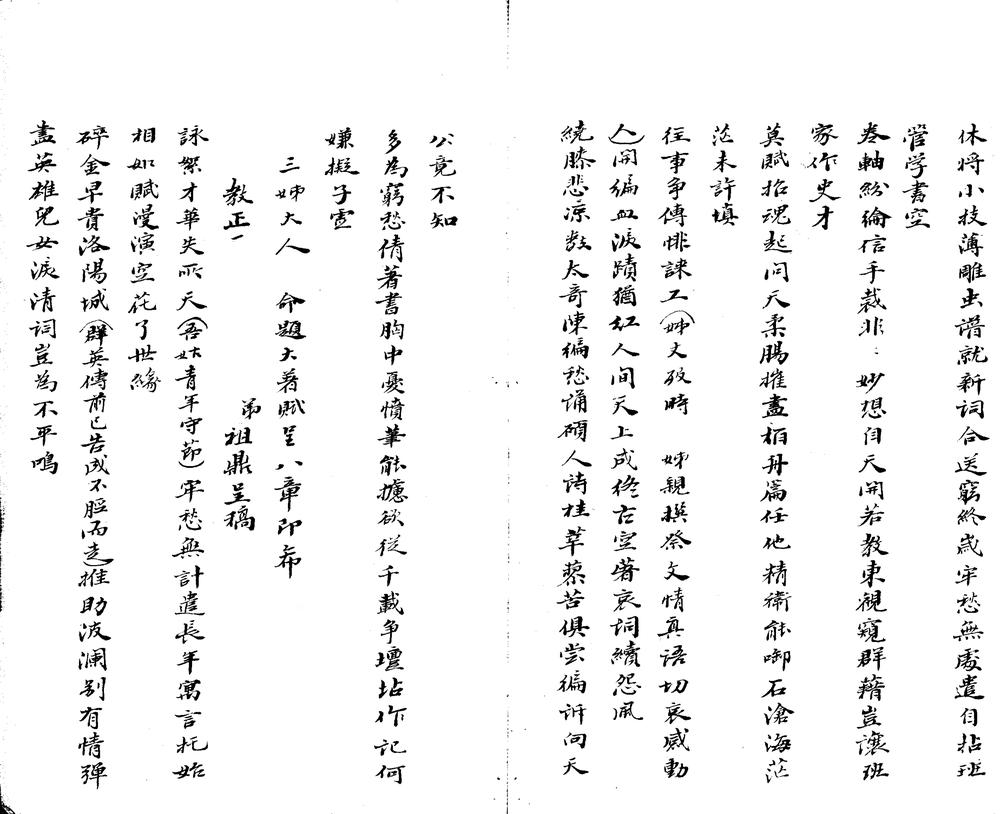 休将小技薄雕虫谱就新词合送窮終歲牢愁無處遣自拈班
管学書空
卷軸紛綸信手裁非：妙想自天開若教東觀窺群籍豈讓班
家作史才
莫賦招魂起问天柔腸摧盡栢舟篇任他精衛能啣石滄海茫
茫未許填
往事争傳悱誄工（姊丈歿時 姊親撰祭文情真语切哀感動
人）闹編血淚蹟猶红人间天上成終古空著哀词續怨風
繞膝悲凉数太奇陳編愁诵碩人詩桂萃藜苦俱尝徧訴向天
公竟不知
多為窮愁倩著書胸中憂憤畢能攄欲従千載争壇坫作记何
嫌擬子雲
三姊大人 命題大著賦呈八章即希
教正
弟祖鼎呈稿
詠絮才華失所天（吾姑青年守節）牢愁無計遣長年寓言托始
相如賦漫演空花了世緣
碎金早貴洛陽城（群英傳前已告成不脛而走推助波澜别有情彈
盡英雄兒女淚清词豈為不平鳴